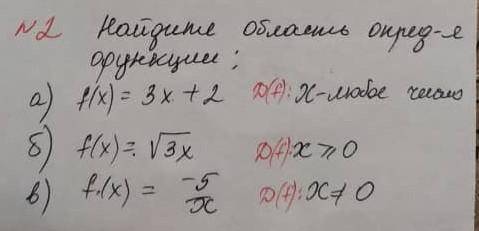 №2 Найдите область опред-я
функции:
а) f(x) = 3x + 2 D(f): x-любое число
б) f(x) = √3x D(f): x ⩾ 0
в) f(x) = -5/x D(f): x ≠ 0